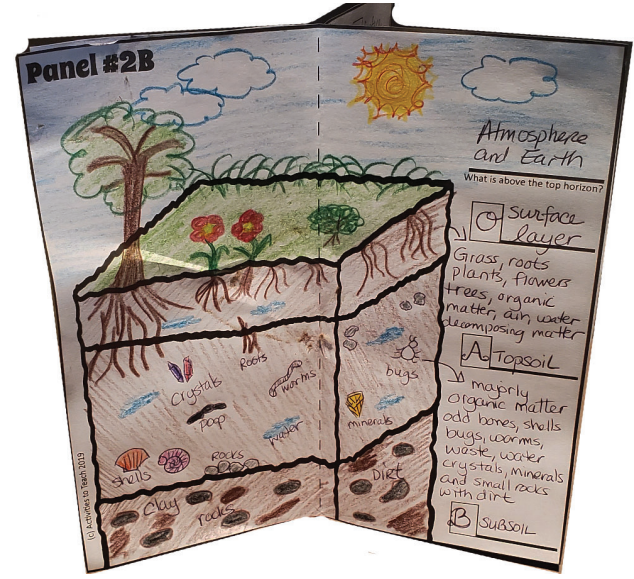 Panel #2B
Atmosphere
and Earth
What is above the top horizon?
O surface
layer
Grass, roots
plants, flowers
trees, organic
matter, air, water
decomposing matter
A Topsoil
majorly
organic matter
odd bones, shells
bugs, worms,
waste, water
crystals, minerals
and small rocks
with dirt
B SUBSOIL
Roots
Crystals
worms
bugs
poop
minerals
water
Rocks
shells
Dirt
Clay
rocks
(c) Activities to Teach 2019